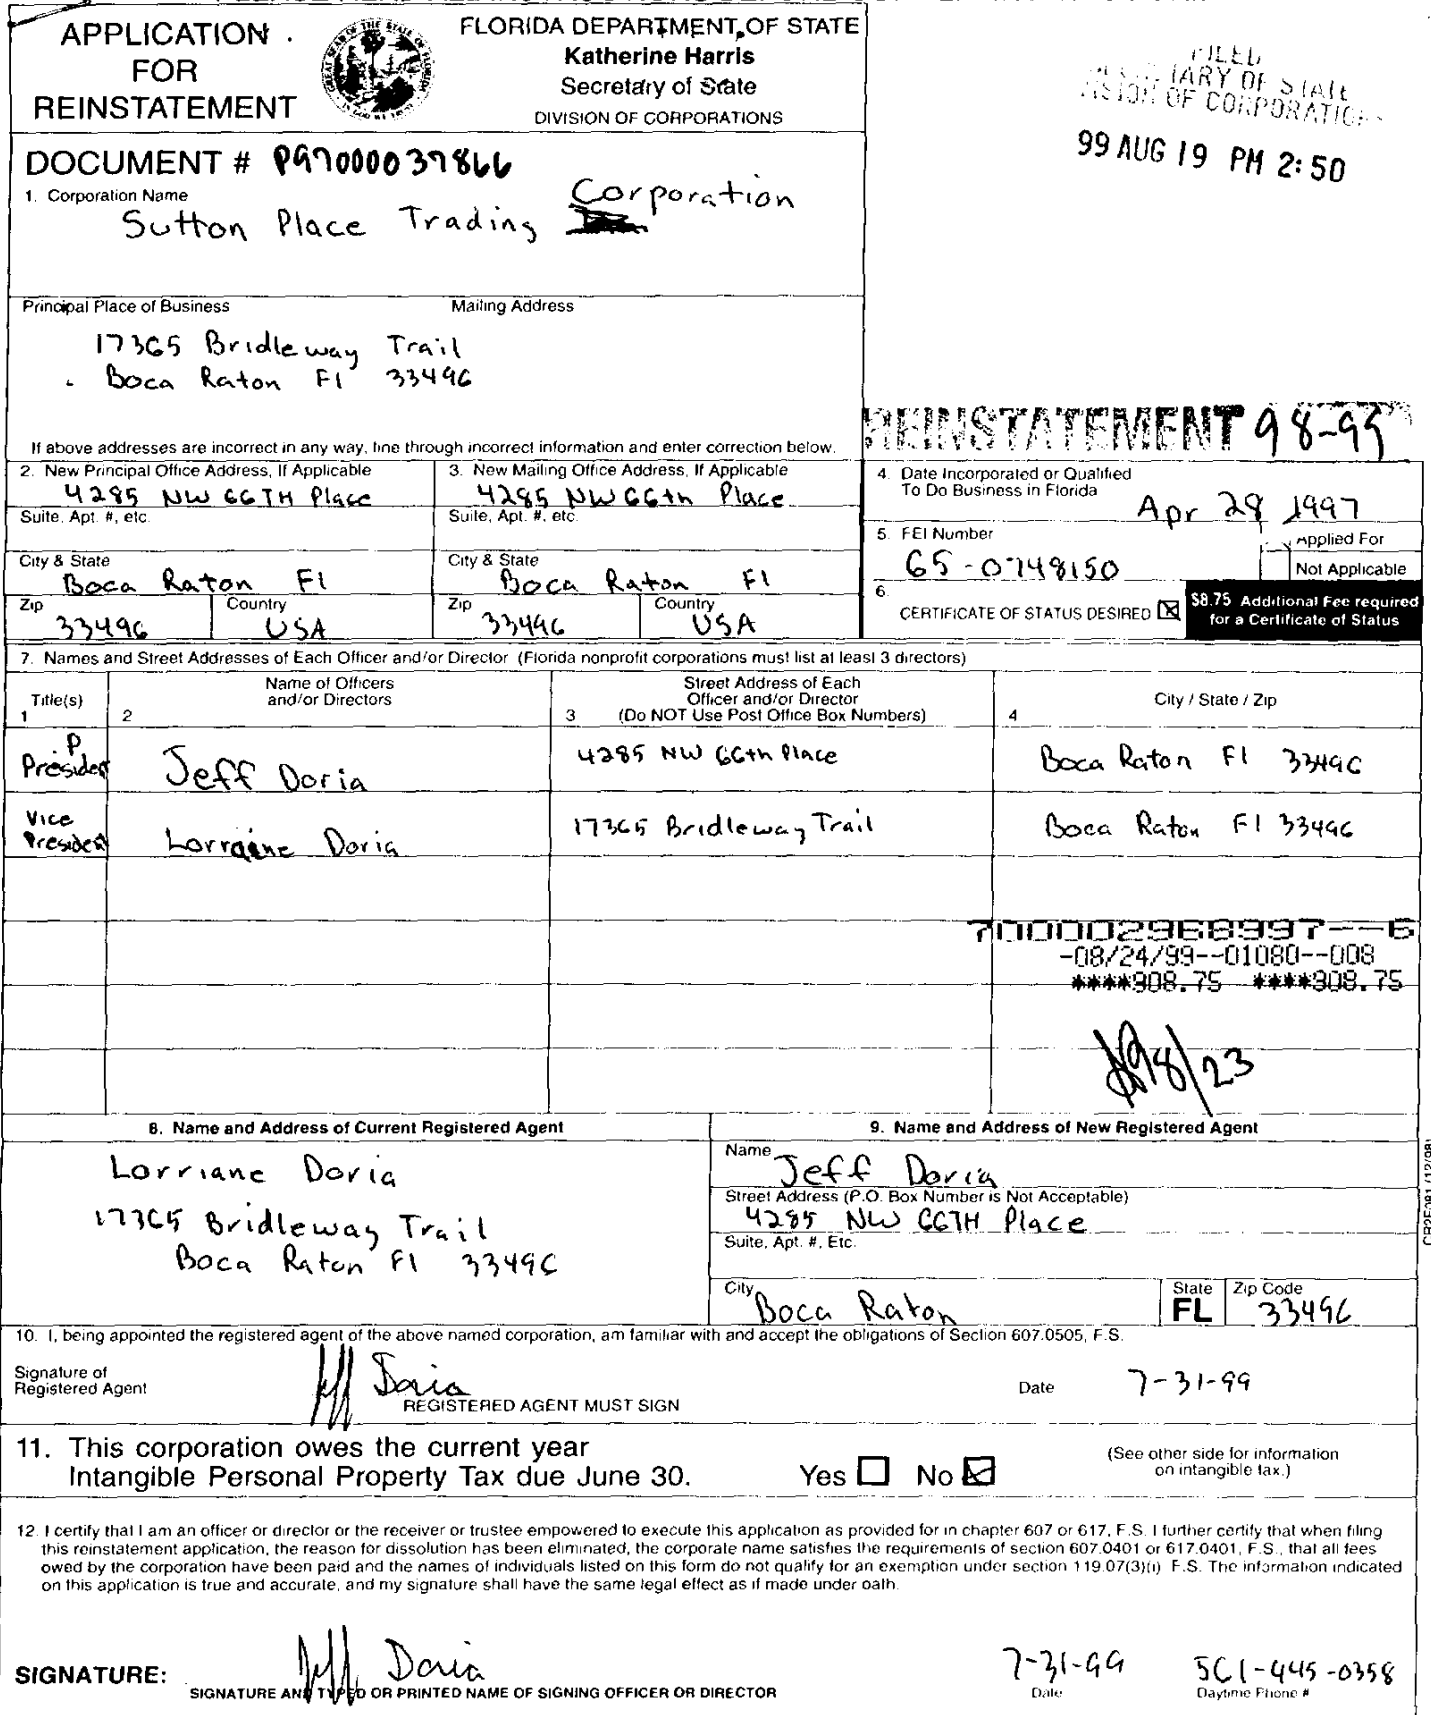 APPLICATION
FOR
REINSTATEMENT
FLORIDA DEPARTMENT OF STATE
Katherine Harris
Secretary of State
DIVISION OF CORPORATIONS
FILED
SECRETARY OF STATE
DIVISION OF CORPORATIONS
99 AUG 19 PM 2:50
DOCUMENT # P97000037866
1. Corporation Name
Sutton Place Trading Corporation
Principal Place of Business
Mailing Address
17365 Bridleway Trail
Boca Raton Fl 33496
REINSTATEMENT 98-99
If above addresses are incorrect in any way, line through incorrect information and enter correction below.
2. New Principal Office Address, If Applicable
4285 NW 66TH Place
Suite, Apt. #, etc.
City & State
Boca Raton Fl
Zip
33496
Country
USA
3. New Mailing Office Address, If Applicable
4285 NW 66th Place
Suite, Apt. #, etc.
City & State
Boca Raton Fl
Zip
33496
Country
USA
4. Date Incorporated or Qualified
To Do Business in Florida
Apr 28 1997
5. FEI Number
65-0748150
Applied For
Not Applicable
6.
CERTIFICATE OF STATUS DESIRED
$8.75 Additional Fee required
for a Certificate of Status
7. Names and Street Addresses of Each Officer and/or Director (Florida nonprofit corporations must list at least 3 directors)
Title(s)
1
Name of Officers
and/or Directors
2
Street Address of Each
Officer and/or Director
3 (Do NOT Use Post Office Box Numbers)
City / State / Zip
4
P
President
Jeff Doria
4285 NW 66th Place
Boca Raton Fl 33496
Vice
President
Lorraine Doria
17365 Bridleway Trail
Boca Raton Fl 33496
700002968997--6
-08/24/99--01080--008
****908.75 ****908.75
8/23
8. Name and Address of Current Registered Agent
Lorriane Doria
17365 Bridleway Trail
Boca Raton Fl 33496
9. Name and Address of New Registered Agent
Name
Jeff Doria
Street Address (P.O. Box Number is Not Acceptable)
4285 NW 66TH Place
Suite, Apt. #, Etc.
City
Boca Raton
State
FL
Zip Code
33496
CR2E081 (12/98)
10. I, being appointed the registered agent of the above named corporation, am familiar with and accept the obligations of Section 607.0505, F.S.
Signature of
Registered Agent
Jeff Doria
REGISTERED AGENT MUST SIGN
Date
7-31-99
11. This corporation owes the current year
Intangible Personal Property Tax due June 30.
Yes No
(See other side for information
on intangible tax.)
12. I certify that I am an officer or director or the receiver or trustee empowered to execute this application as provided for in chapter 607 or 617, F.S. I further certify that when filing
this reinstatement application, the reason for dissolution has been eliminated, the corporate name satisfies the requirements of section 607.0401 or 617.0401, F.S., that all fees
owed by the corporation have been paid and the names of individuals listed on this form do not qualify for an exemption under section 119.07(3)(i) F.S. The information indicated
on this application is true and accurate, and my signature shall have the same legal effect as if made under oath.
SIGNATURE:
Jeff Doria
7-31-99
561-445-0358
SIGNATURE AND TYPED OR PRINTED NAME OF SIGNING OFFICER OR DIRECTOR
Date
Daytime Phone #